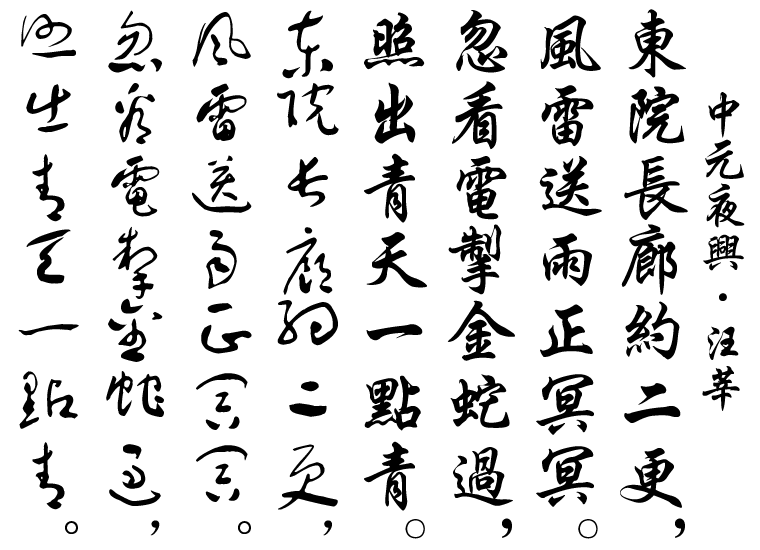 中元夜興·汪莘
東院長廊約二更，
風雷送雨正冥冥。
忽看電掣金蛇過，
照出青天一點青。
東院長廊約二更，
風雷送雨正冥冥。
忽看電掣金蛇過，
照出青天一點青。